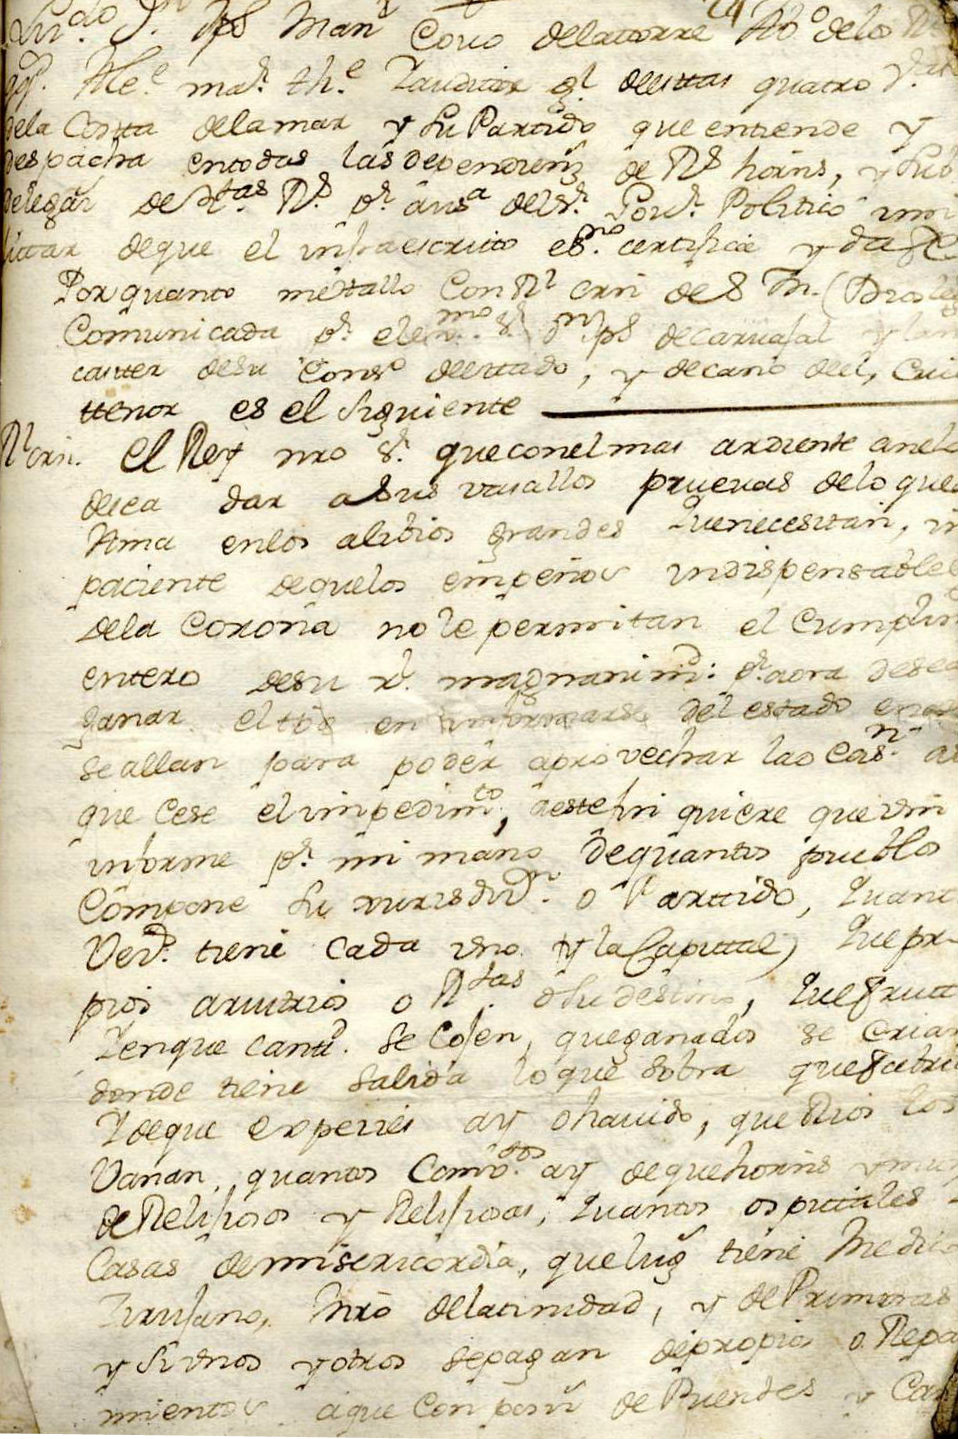 Lizdo Dn Jph Manl Covo delatorre Abo delos Rs
Alce mar. the. Tauditor gl destas quatro v.
dela Costa delamar y su Partido que entiende y
despacha entodas las dependenz de Rs hoins, y sub
delegaz de Rtas Rs pr ausa delsr. Govr. Politico y mi
litar deque el infraescrito esno. certifica y da fe
Porquanto mehallo Con Rl orn de S M. (Dios le g
Comunicada pr. elexmo sr Dn Jph de carvajal y lan
caster desu Conso deestado, y decano del, cuio
ttenor es el siguiente
Rl orn. El Rey nro Sr. queconelmas ardiente anelo
desea dar asus vasallos pruevas delo que
Ama enlos alivios grandes quenecesitan, im
paciente dequelos empeños indispensables
dela Corona no le permitan el Cumplim
entero desu Rl. magnanimd: pr. aora desea
ganar eltpo en informarse del estado en
sehallan para poder aprovechar la ocasn. a
que cese elimpedimto, aestefin quiere que vm
informe pr. mi mano dequantos pueblos
Compone su jurisdizn. o Partido, quant
Vezs. tiene cada uno (y la Capital) que pr-
pios arvitrios o Rtas. o su destino, que frut
Yenque cantd. se cojen, queganados se crian
donde tiene salida lo que sobra quefabric
Ydeque especies ay o havido, que Rios los
Vañan, quantos Convtos. ay dequehorns y
de Relijiosos y Relijiosas, quantos ospitales
Casas demisericordia, queluz tiene Medico
Zirujano, Mro delatinidad, y de Primeras
y si unos y otros sepagan depropios o Repa
mientos aque Con posn de Puentes y Cam